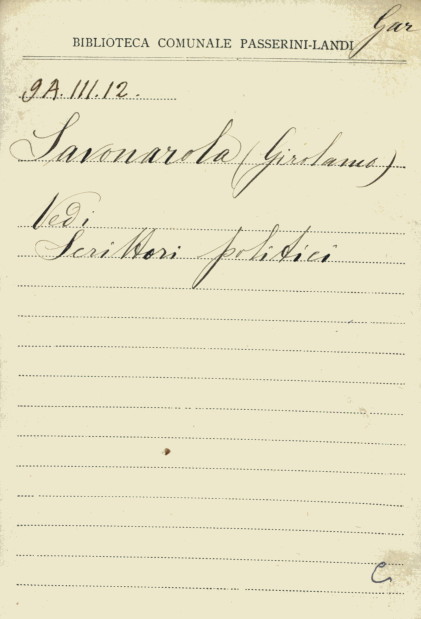 Gar
BIBLIOTECA COMUNALE PASSERINI-LANDI
9A.III.12.
Savonarola (Girolamo)
Vedi
Scrittori politici
C